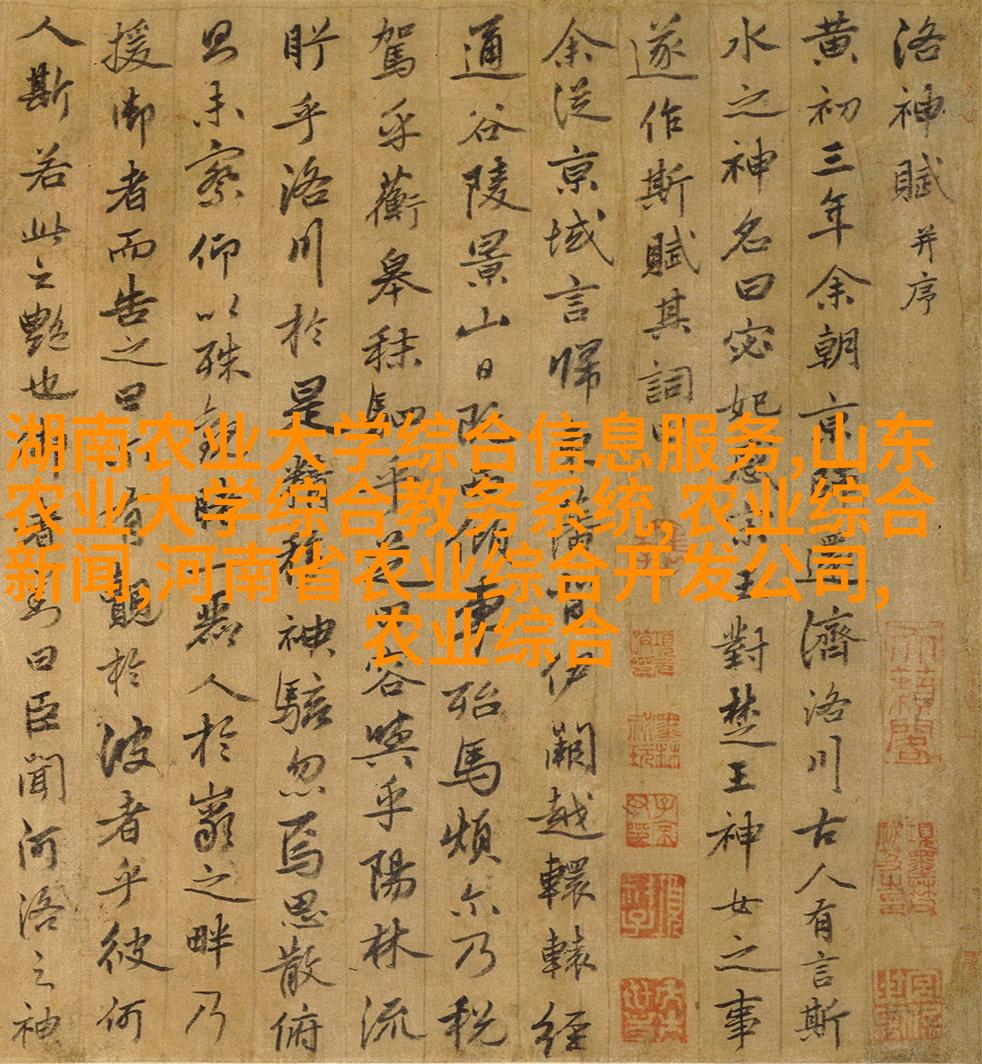 洛神賦并序
黄初三年余朝京還濟洛川古人有言斯
水之神名曰宓妃感宋玉對楚王神女之事
遂作斯賦其詞曰
余從京域言歸東藩背伊闕越轘轅經
通谷陵景山日既西傾車殆馬煩尓乃税
駕乎蘅皋秣駟乎芝田容與乎陽林流
眄乎洛川於是精移神駭忽焉思散俯
則未察仰以殊觀睹一麗人於巖之畔乃
援御者而告之曰有覿於彼者乎彼何
人斯若此之艷也御者對曰臣聞河洛之神
湖南农业大学综合信息服务,山东
农业大学综合教务系统,农业综合
新闻,河南省农业综合开发公司,
农业综合